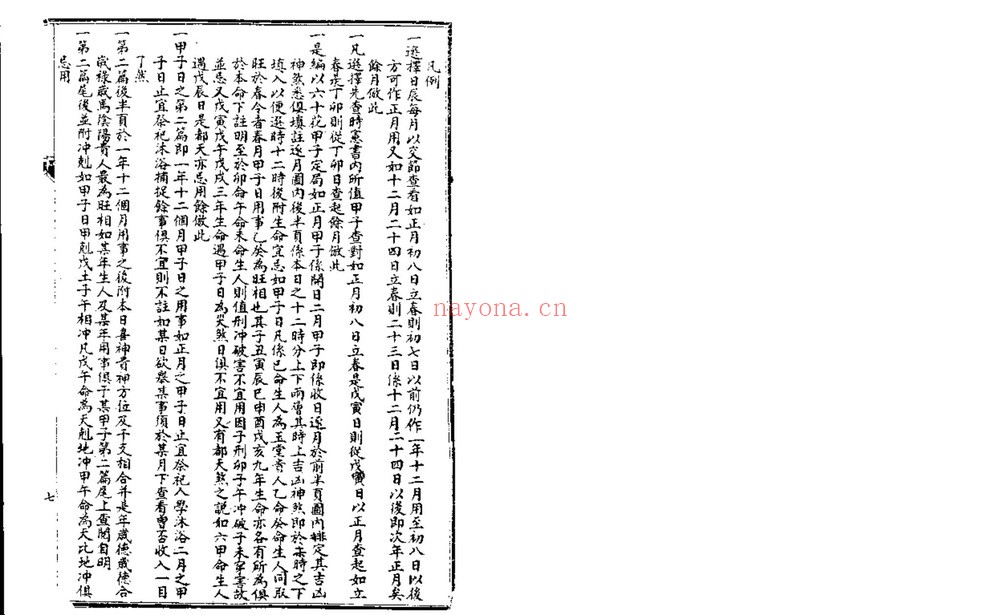 凡例
一選擇日辰每月以交節查看如正月初八日立春則初七日以前仍作一年十二月用至初八日以後
方可作正月用又如十二月二十四日立春則二十三日係十二月二十四日以後即次年正月矣
餘月倣此
一凡選擇先查時憲書內所值甲子查對如正月初八日立春是戊寅日則從戊寅日以正月查起如立
春是丁卯則從丁卯日查起餘月倣此
一是編以六十花甲子定局如正月甲子係開日二月甲子即係收日逐月於前半頁圖內排定其吉凶
神煞悉俱填註逐月圖內後半頁係本日之十二時分上下兩層其時上吉凶神煞即於每時之下
填入以便選時十二時後附生命宜忌如甲子日凡係己命生人為玉堂貴人乙命癸命生人同取
旺於春令者春月甲子日用事乙癸為旺相也其子丑寅辰巳申酉戌亥九年生命亦各有所為俱
於本命下註明至於卯命午命未命生人則值刑冲破害不宜用因子刑卯子午冲破子未穿害故
並忌又戊寅戊午戊戌三年生命遇甲子日為災煞日俱不宜用又有都天煞之說如六甲命生人
遇戊辰日是都天亦忌用餘倣此
一甲子日之第二篇即一年十二個月甲子日之用事如正月之甲子日止宜祭祀入學沐浴二月之甲
子日止宜祭祀沐浴捕捉餘事俱不宜則不註如某日欲舉某事須於某月下查看曾否收入一目
了然
一第二篇後半頁於一年十二個月用事之後附本日喜神貴神方位及干支相合并是年歲德歲德合
歲祿歲馬陰陽貴人最為旺相如某年生人及某年用事俱于某甲子第二篇尾上查閱自明
一第二篇尾後並附冲剋如甲子日甲剋戊土子午相冲凡戊午命為天剋地冲甲午命為天比地冲俱
忌用
七
nayona.cn